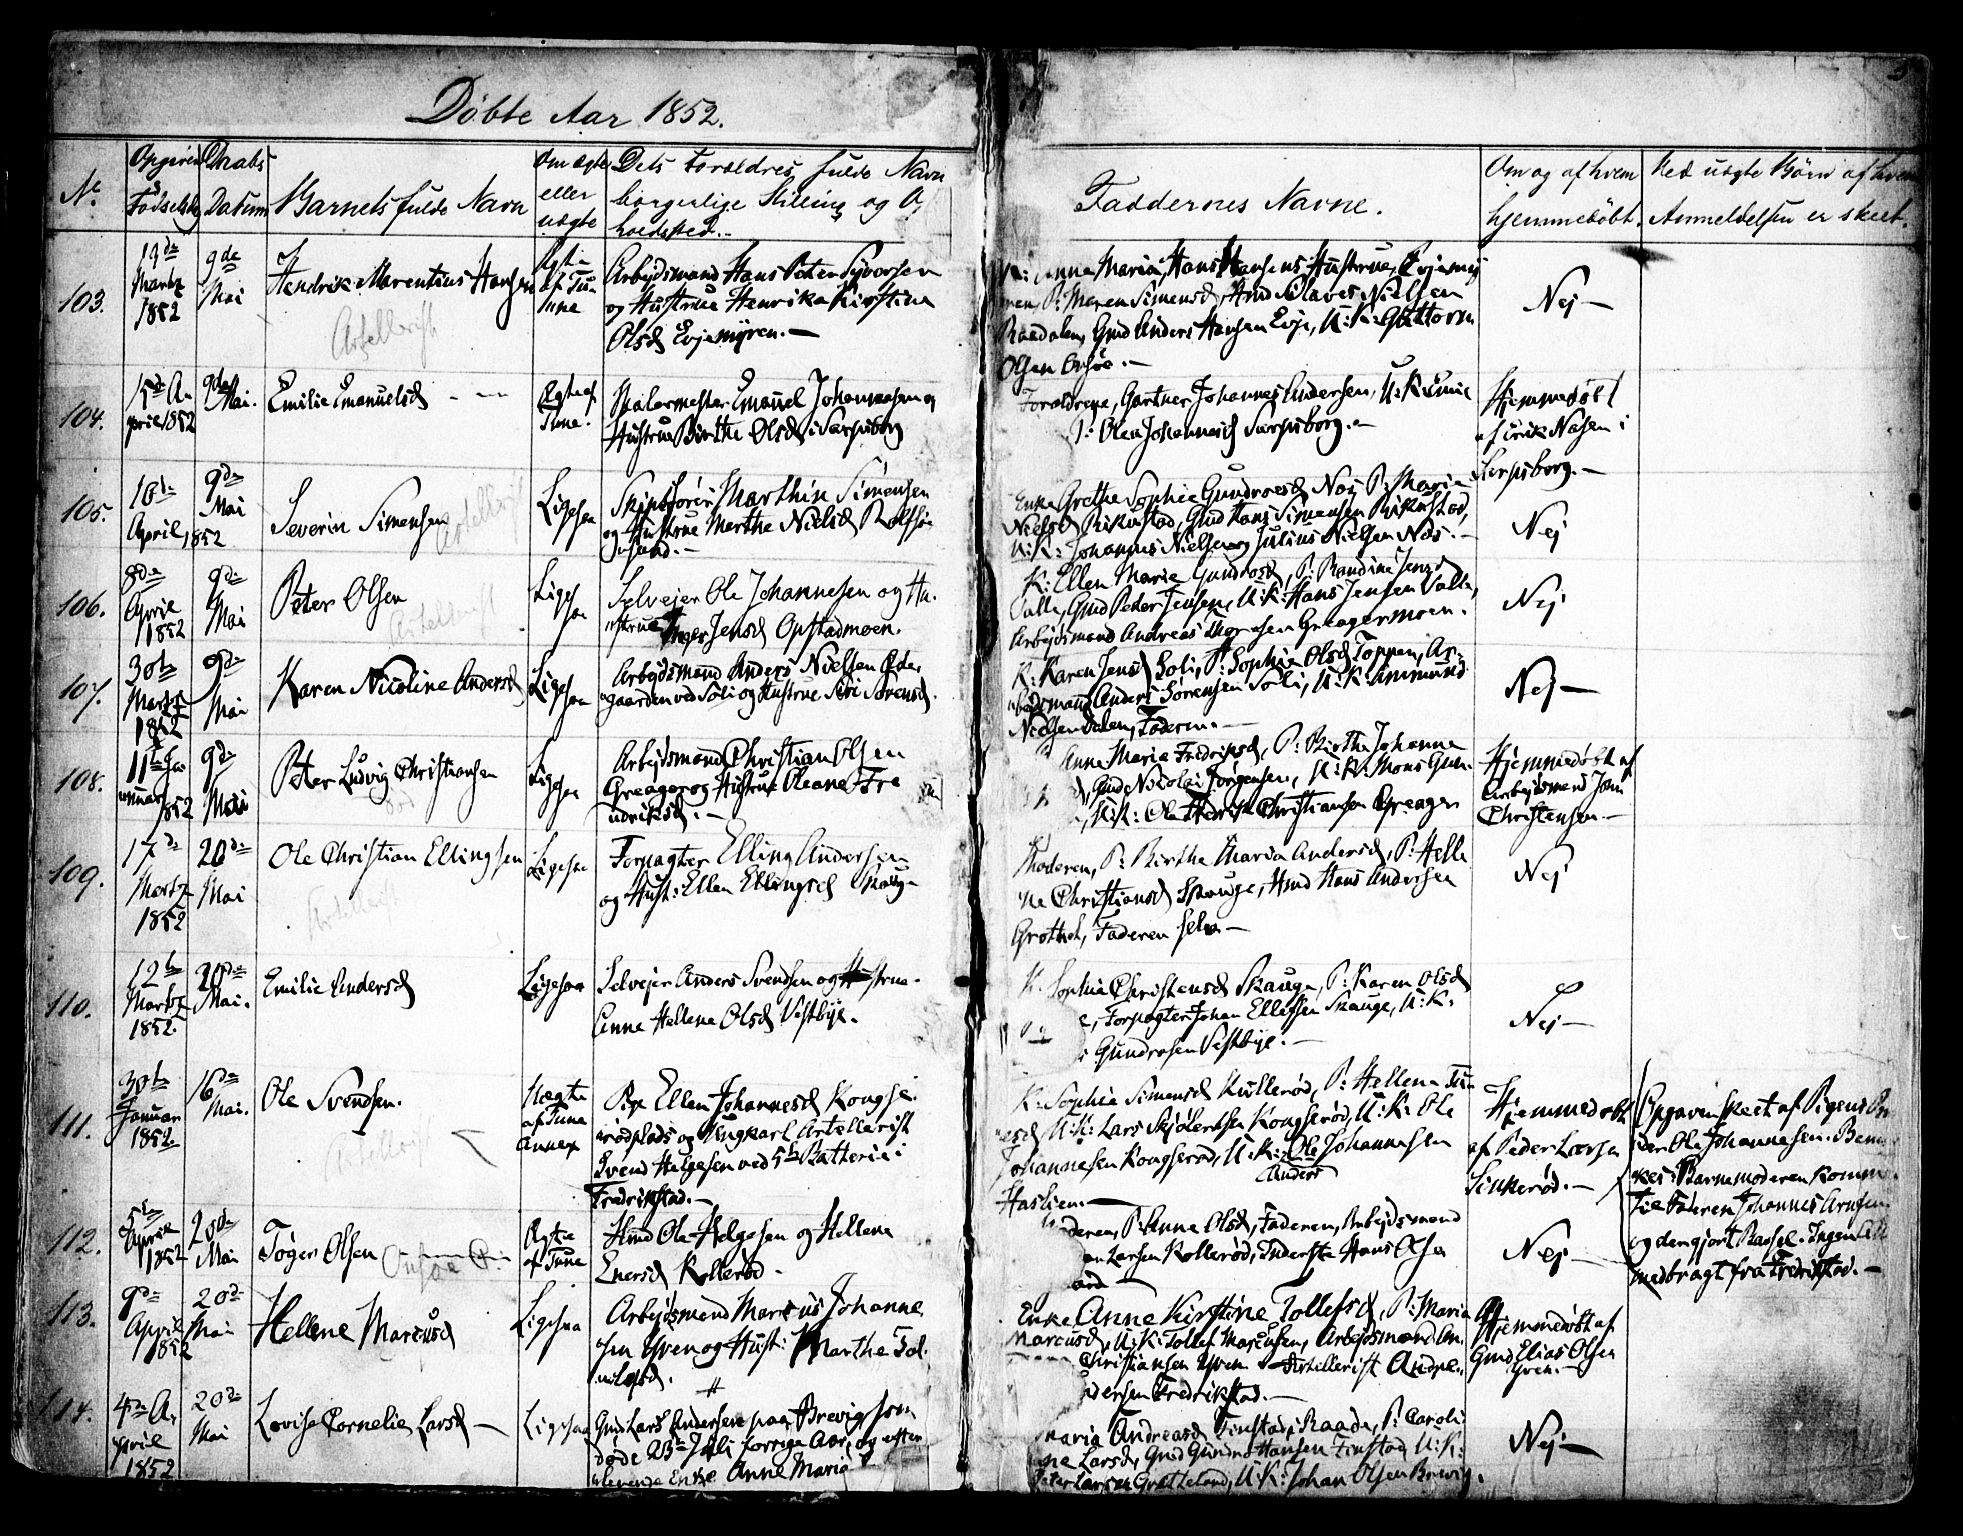 Døbte Aar 1852.
No
Opgiven Fødselsd.
Daabs Datum
Barnets fulde Navn
Om ægte eller uægte
Dets Forældres fulde Navn
borgerlige Stilling og O
holdssted.
Faddernes Navne.
Om og af hvem
hjemmedøbt.
Ved uægte Børn af hvem
Anmeldelsen er skeet.
103.
Martz
1852
9de
Mai
Hendrik Marentius Hansen
Artellerist
Ægte
af Tu
nne
Arbejdsmand Hans Peter Syversen
og Hustrue Henrika Kirstine
Olsd Evjemyren. —
Anna Maria Hans Hansens Hustrue, Evjemy
ren P: Maren Simensd, Gmd Nielsen
Raadalen, Gmd Anders Hansen Evje, U: K: Guttorm
Olsen Onsøe. —
Nej —
104.
15de A
pril 1852
9de Mai.
Emilie Emanuelsd
Ægte af
Tune.
Malermester Emanuel Johannesen og
Hustrue Birthe Olsd i Sarpsborg
Forældrene, Gartner Johannes Andersen, U: K: Emil
P: Olea Johannesd Sarpsborg. —
Hjemmedøbt
af Erik Nasen i
Sarpsborg. —
105.
10de
April 1852
9de
Mai
Severin Simensen
Artellerist
Ligesaa
Marthin Simensen
og Hustrue Marthe Nielsd Rolfsø
Enke Grethe Sophie Gundrosd Næs P: Maria
Nielsd Rikustad, Gmd Hans Simensen Rikustad,
U: K: Johannes Nielsen og Julius Nielsen Næs. —
Nej
106.
8de
April
1852
9de
Mai
Peter Olsen
Artellerist
Ligesaa
Selvejer Ole Johannesen og Hu
strue Inger Jensd Opstadmoen.
K: Ellen Marie Gundrosd, P: Randine Jensd
Valle, Gmd Peder Jensen, U: K: Hans Jensen Valle,
Arbejdsmand Andreas Greagermoen.
Nej
107.
30te
Martz
1852
9de
Mai
Karen Nicoline Andersd
Ligesaa
Arbejdsmand Anders Nielsen Øde
gaarden ved Soli og Hustrue Siri Sørensd.
K: Karen Jensd Soli, P: Sophie Olsd Toppen, Ar
bejdsmand Anders Sørensen Soli, U: K: Ammund
Nielsen Dalen, Faderen. —
Nej —
108.
11te Ja
nuar
1852
9de
Mai
Peter Ludvig Christiansen
Død
Ligesaa
Arbejdsmand Christian Olsen
Greager og Hustrue Oleane Fre
driksd. —
Anna Maria Fredriksd, P: Birthe Johanne
Gmd Nikolai Jørgensen, U: K: Mons Gun
U: K: Ole Hedrik Christiansen Greager
Hjemmedøbt af
Arbejdsmand John
Christensen —
109.
17de
Martz
1852
20de
Mai
Ole Christian Ellingsen
Artellerist
Ligesaa
Forpagter Elling Andersen
og Hust: Ellen Ellingsd Skaug
Moderen, P: Birthe Maria Andersd, P: Helle
ne Christiansd Skauge, Hmd Hans Andersen
Faderen selv —
Nej
110.
12te
Martz
1852.
20de
Mai.
Emilie Andersd
Ligesaa
Selvejer Anders Svendsen og Hustrue
Anne Hellene Olsd Vestbye.
K: Sophie Christensd Skauge, P: Karen Olsd
Forpagter Johan Ellefsen Skauge, U: K:
Gundrosen Vestbye. —
Nej —
111.
30te
Januar
1852
16de
Mai.
Ole Svendsen.
Artellerist
Uægte
af Tune
Annex
Pige Ellen Johannesd Kongse
rødplads og Ungkarl Artellerist
Svend Helgesen ved 5te Batteri i
Fredrikstad. —
K: Sophie Simensd Kullerød, P: Hellena
U: K: Lars Skjølertsen Kongserød, U: K: Ole
Johannesen Kongserød, U: K: Ole Johannesen
Anders
Haslien. —
Hjemmedøbt
af Peder Larsen
Sinkerød. —
Opgaven skeet af Pigens Br
der Ole Johannesen. Bem
kes: Barnemoderen komm
til Føderen Johannes
og den gjort Ingen
medbragt fra Fredrikstad. —
112.
5te
April
1852
20de
Mai
Tøger Olsen
Onsøe
Ægte
af Tune
Hmd Ole Helgesen og Hellene
Enersd Kollerød
Moderen, P: Anne Olsd, Faderen, Arbejdsmand
Larsen Kollerød, Inderste Hans Olsen
Nej —
113.
9de
April
1852
20de
Mai
Hellene Marcusd
Ligesaa
Arbejdsmand Marcus Johanne
sen Yven og Hust: Marthe Tol
Enke Anne Kirstine Tollefsd, P: Maria
Marcusd, U: K: Tollef Marcusen, Arbejdsmand An
Christiansen Yven Artellerist Andre
dersen Fredrikstad. —
Hjemmedøbt af
Gmd Elias Olsen
Yven. —
114.
4de A
pril
1852
20de
Mai
Lovise Cornelie Larsd —
Ligesaa
Gmd Lars Andersen paa Brevig som
døde 23de Juli forrige Aar, og efter
levende Enke Anne Maria
Maria Andreasd Tinstad i Raade, P: Caroli
ne Larsd, Gmd Gundro Hansen Tinstad, U: K:
Peter Larsen Grætteland, U: K: Johan Olsen Brevig.
Nej —